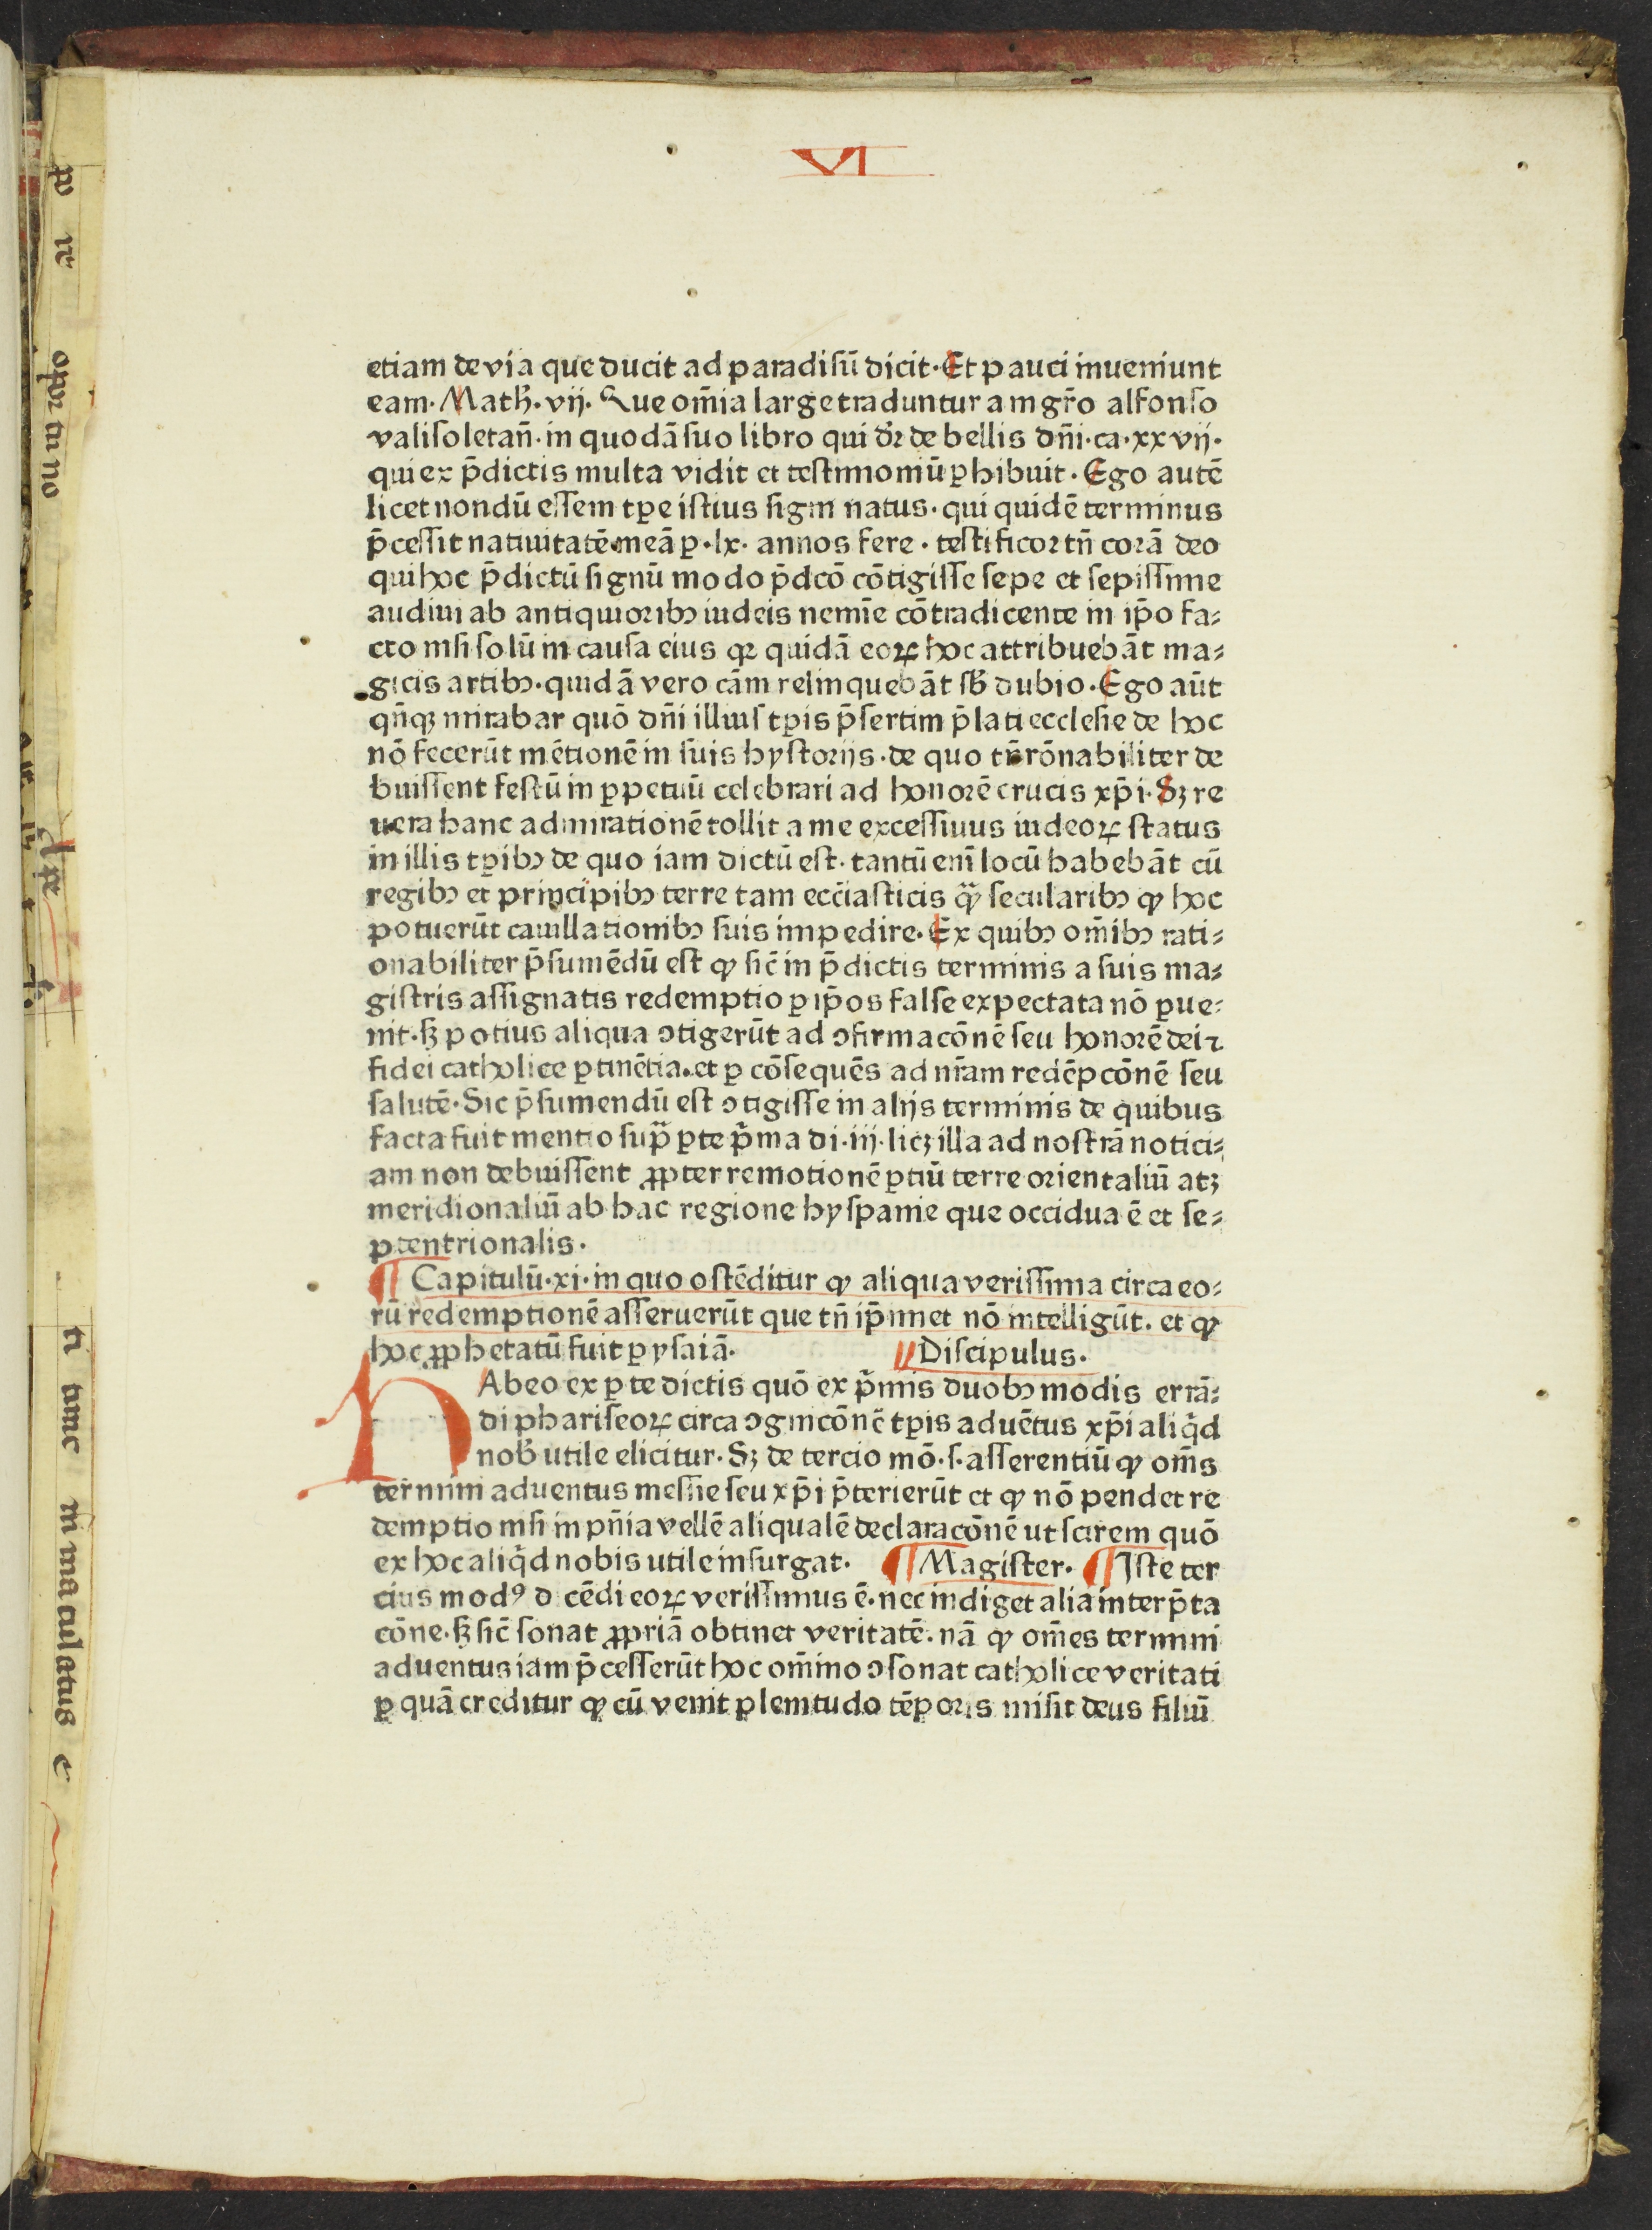 VI
etiam de via que ducit ad paradisū dicit. Et pauci inueniunt
eam. Math̄. vij. Que om̄ia large traduntur a mgr̄o alfonso
valisoletan̄. in quodā suo libro qui dr̄ de bellis dn̄i. ca. xxvij.
qui ex p̄dictis multa vidit et testimoniū ꝑhibuit. Ego autē
licet nondū essem tꝑe istius signi natus. qui quidē terminus
p̄cessit natiuitatē meā ꝑ .lx. annos fere. testificor tn̄ corā deo
qui hoc p̄dictū signū modo p̄dcō cōtigisse sepe et sepissime
audiui ab antiquioribꝯ iudeis nemīe cōtradicente in ip̄o fa⸗
cto nisi solū in causa eius qꝛ quidā eoꝝ hoc attribuebāt ma⸗
gicis artibꝯ. quidā vero cām relinquebāt sb̄ dubio. Ego aūt
qn̄qꝫ mirabar quō dn̄i illius tꝑis p̄sertim p̄lati ecclesie de hoc
nō fecerūt mētionē in suis hystorijs. de quo tn̄ rōnabiliter de
buissent festū in ꝑpetuū celebrari ad honorē crucis xp̄i. Sꝫ re
uera hanc admirationē tollit a me excessiuus iudeoꝝ status
in illis tꝑibꝯ de quo iam dictū est. tantū enī locū habebāt cū
regibꝯ et principibꝯ terre tam ecc̄iasticis qͣ̄ secularibꝯ ꝙ hoc
potuerūt cauillationibꝯ suis impedire. Ex quibꝯ om̄ibꝯ rati⸗
onabiliter p̄sumēdū est ꝙ sic̄ in p̄dictis terminis a suis ma⸗
gistris assignatis redemptio ꝑ ip̄os false expectata nō ꝑue⸗
nit. sꝫ potius aliqua ↄtigerūt ad ↄfirmacōnē seu honorē dei ⁊
fidei catholice ꝑtinētia. et ꝑ cōsequēs ad nr̄am redēpcōnē seu
salutē. Sic p̄sumendū est ↄtigisse in alijs terminis de quibus
facta fuit mentio supͣ ꝑte p̄ma di. iij. licꝫ illa ad nostrā notici⸗
am non debuissent ꝓpter remotionē ꝑtiū terre orientaliū atꝫ
meridionaliū ab hac regione hyspanie que occidua ē et se⸗
ptentrionalis.
¶ Capitulū. xi. in quo ostēditur ꝙ aliqua verissima circa eo⸗
rū redemptionē asseruerūt que tn̄ ip̄imet nō intelligūt. et ꝙ
hoc ꝓphetatū fuit ꝑ ysaiā. Discipulus.
HAbeo ex ꝑte dictis quō ex p̄mis duobꝯ modis errā⸗
di phariseoꝝ circa ↄgnicōnē tꝑis aduētus xp̄i aliq̇d
nob̄ utile elicitur. Sꝫ de tercio mō. s. asserentiū ꝙ om̄s
termini aduentus messie seu xp̄i p̄terierūt et ꝙ nō pendet re
demptio nisi in pn̄ia vellē aliqualē declaracōnē ut scirem quō
ex hoc aliq̇d nobis utile insurgat. ¶ Magister. ¶ Iste ter
cius modꝰ dicēdi eoꝝ verissimus ē. nec indiget alia interp̄ta
cōne. sꝫ sic̄ sonat ꝓpriā obtinet veritatē. nā ꝙ om̄es termini
aduentus iam p̄cesserūt hoc om̄ino ↄsonat catholice veritati
ꝑ quā creditur ꝙ cū venit plenitudo tēporis misit deus filiū